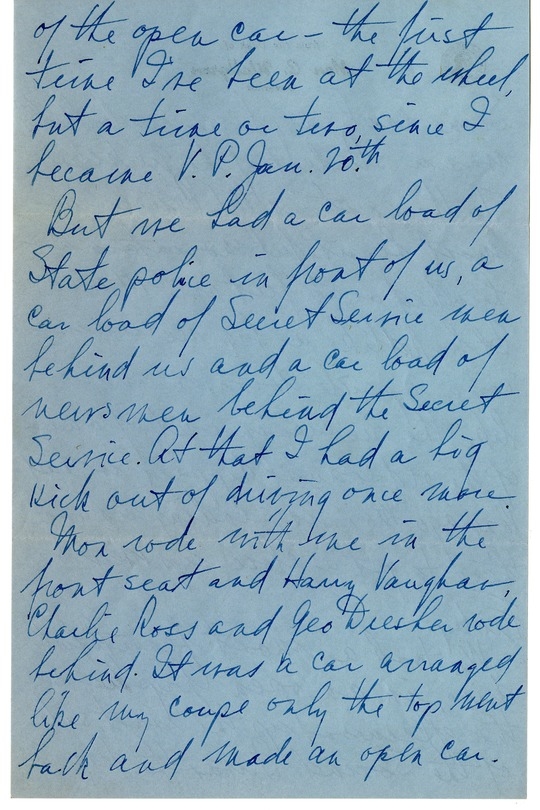 of the open car – the first
time I've been at the wheel,
but a time or two, since I
became V. P. Jan. 20.th
But we had a car load of
State police in front of us, a
car load of Secret Service men
behind us and a car load of
newsmen behind the Secret
Service. At that I had a big
kick out of driving once more.
Mon rode with me in the
front seat and Harry Vaughan,
Charlie Ross and Geo Drescher rode
behind. It was a car arranged
like my coupe only the top went
back and made an open car.